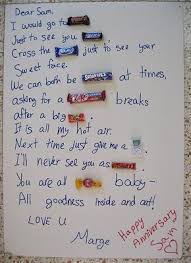 Dear Sam,
I would go to
Just to see you
Cross the just to see your
Sweet face.
We can both be SMARTIES at times,
asking for a breaks
after a big
It is all my hot air.
Next time just give me a
I'll never see you as
You are all baby-
All goodness inside and art!
LOVE U
Marge
Happy
Anniversary
Sam